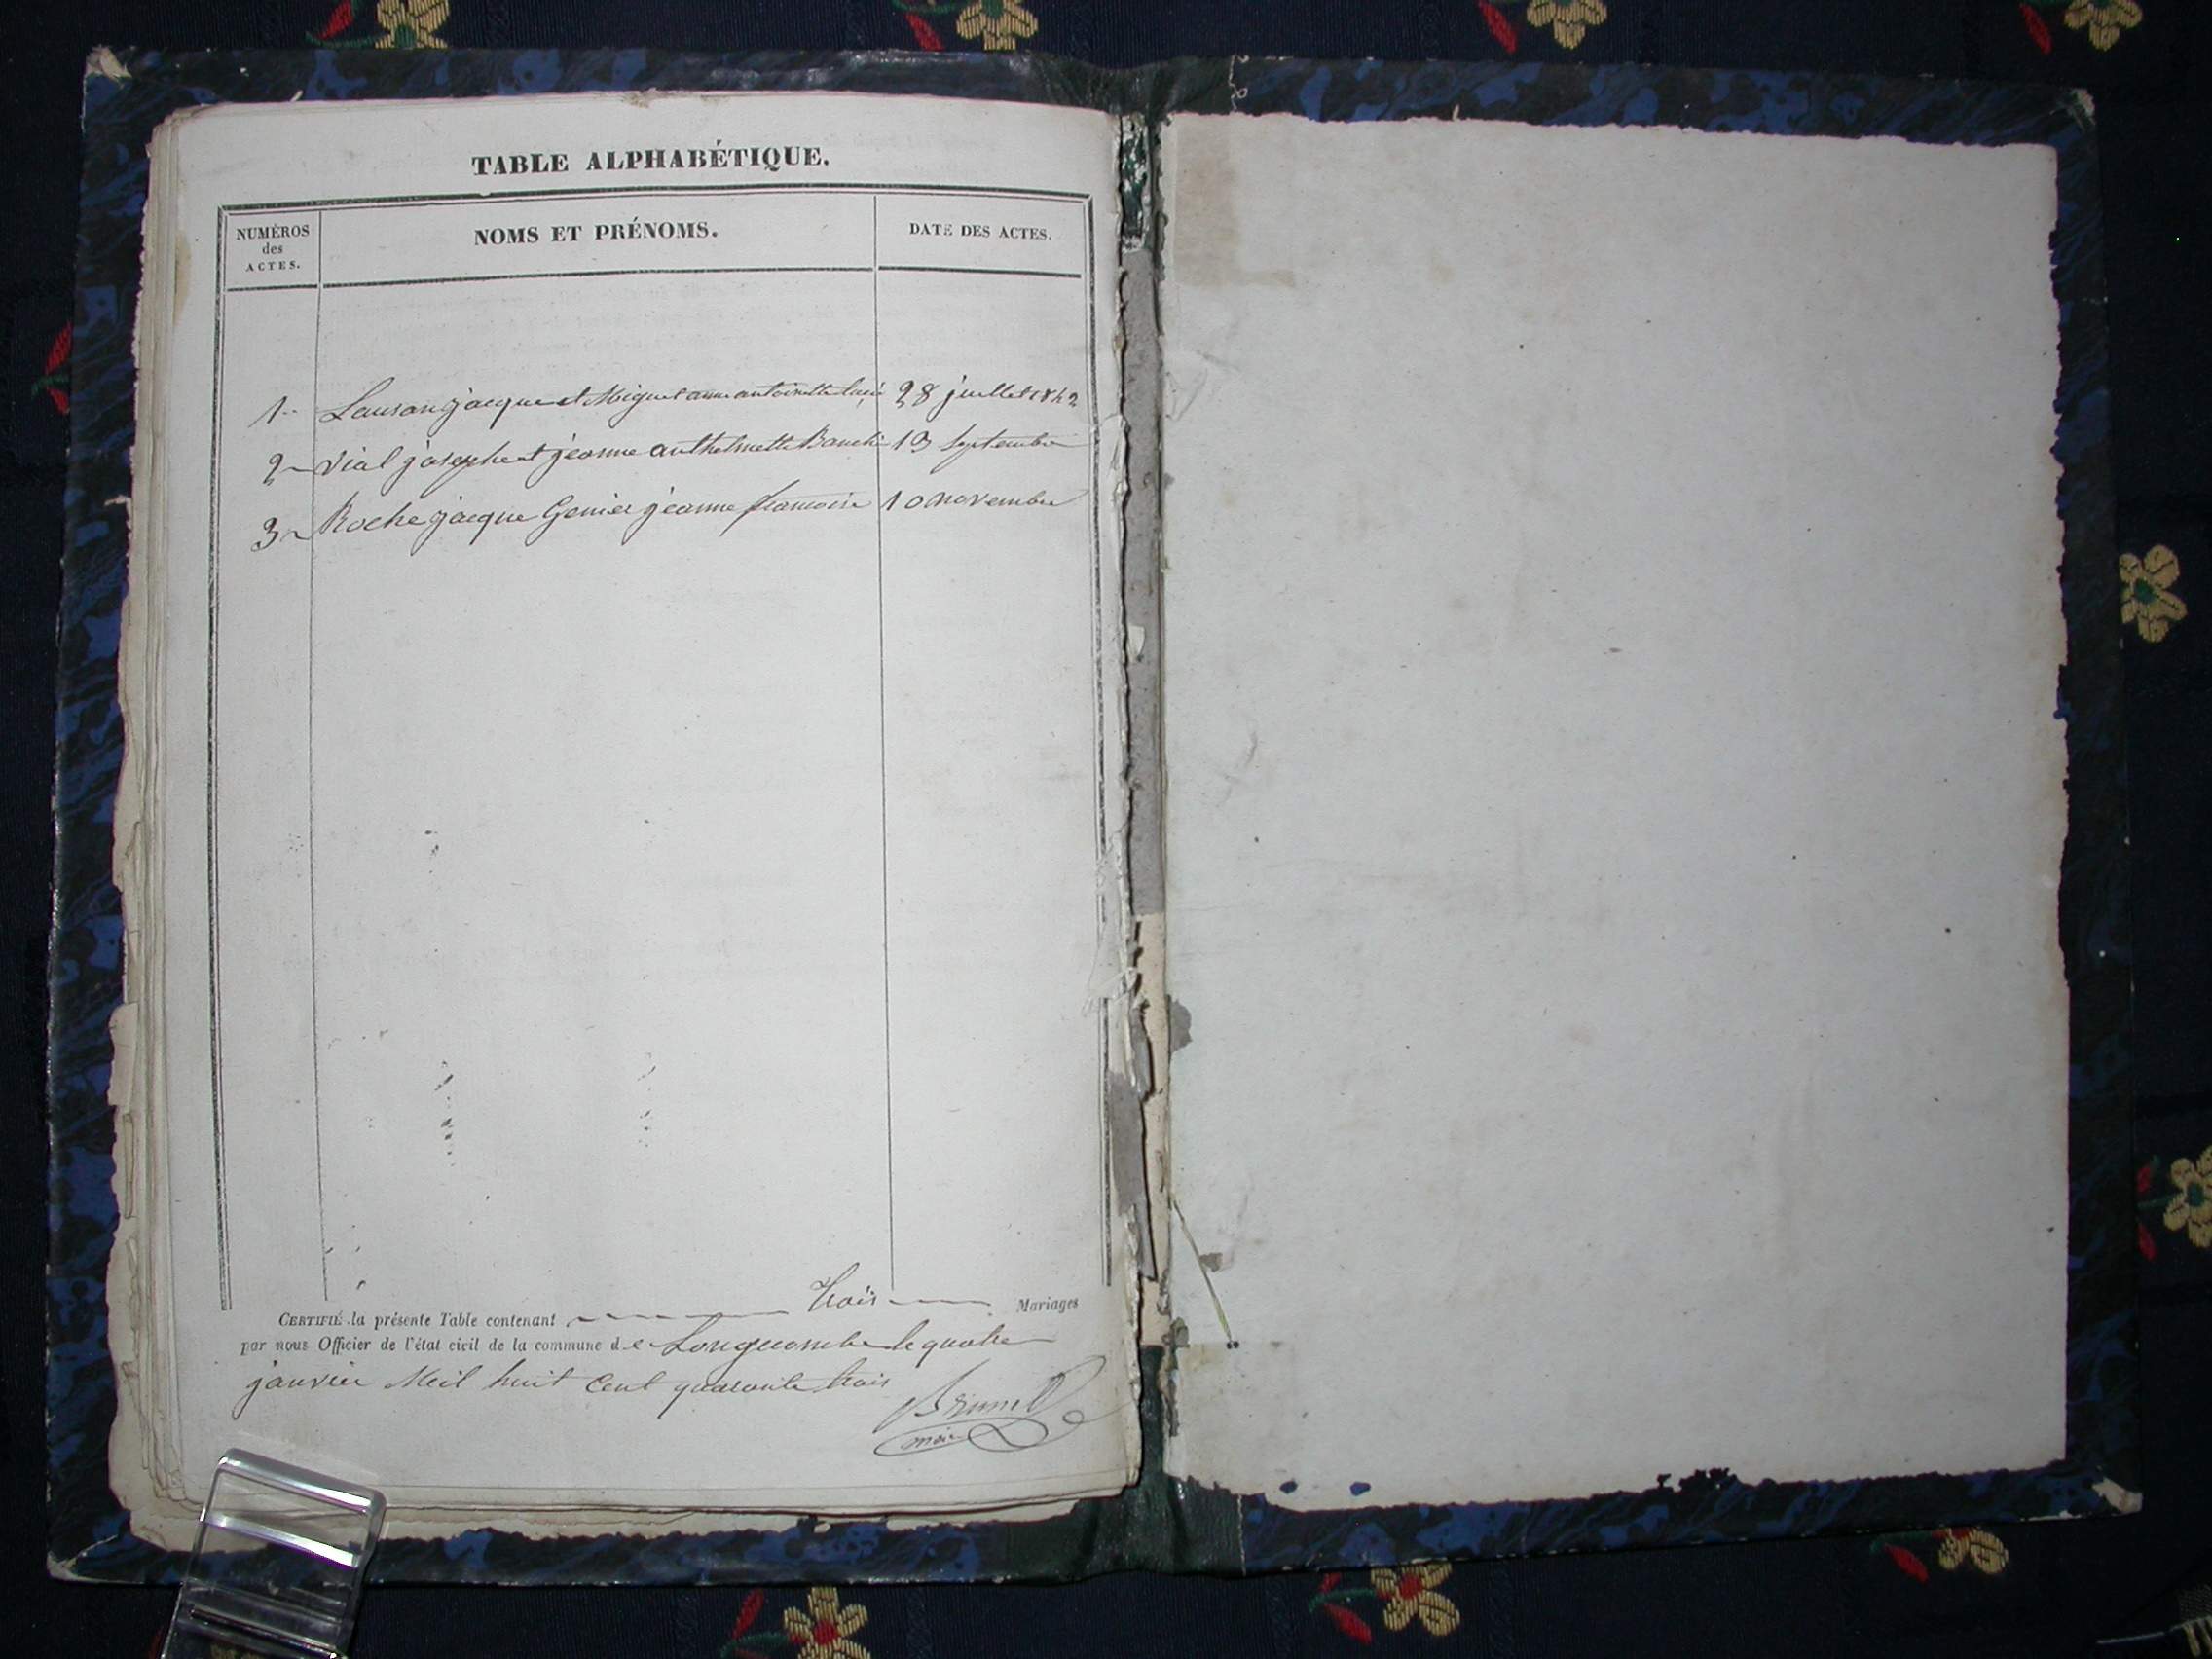 TABLE ALPHABÉTIQUE.
NUMÉROS des ACTES. NOMS ET PRÉNOMS. DATE DES ACTES.
1 Lauran jacque et Miguet anne antoinette 28 juillet 1842
2 Vial josephe et jeanne anthelmette 13 Septembre
3 Roche jacque Genier jeanne francoise 10 novembre
CERTIFIÉ la présente Table contenant trois Mariages
par nous Officier de l'état civil de la commune de Longecombe le quatre
janvier Meil huit Cent quarante trois
Brunet
maire